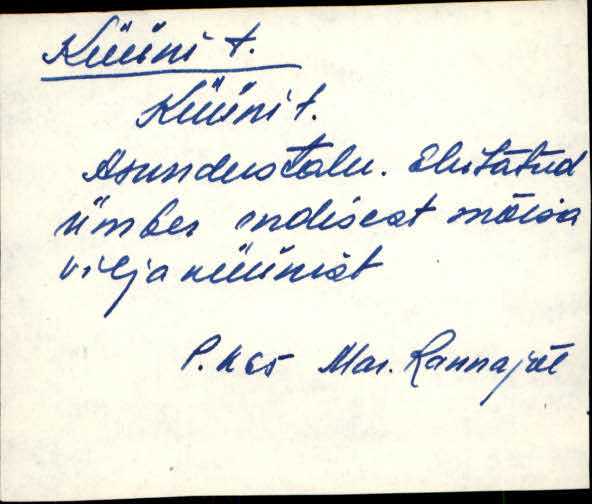 Küüni t.
Küüni t.
Asundustalu. Ehitatud
ümber endisest mõisa
viljaküünist
Mar. Rannajõe